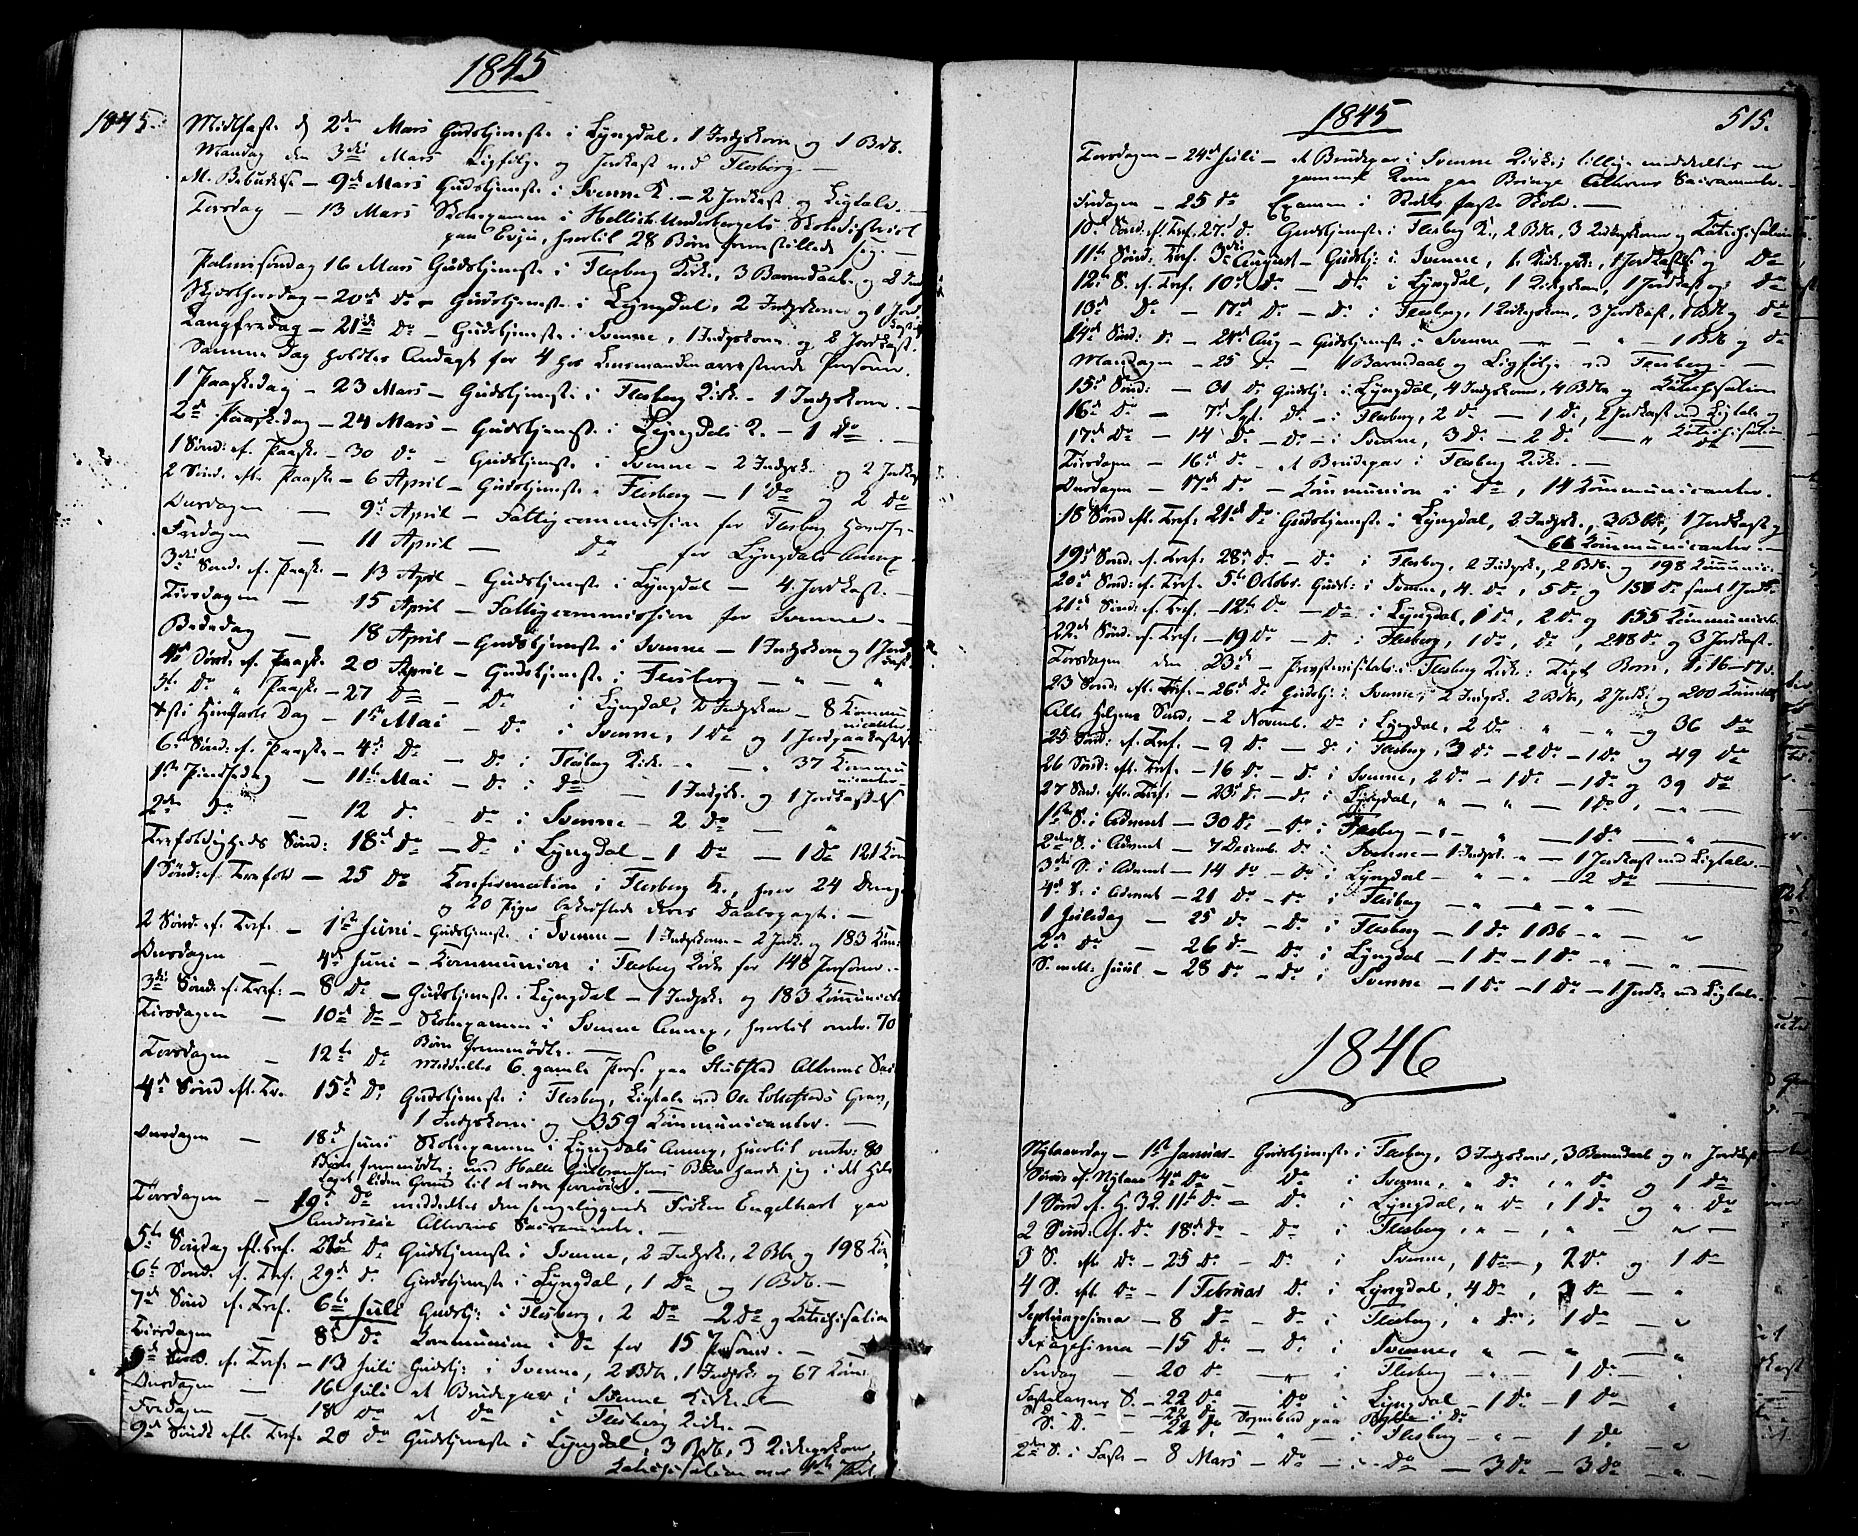 1845
1845.
Midfaste d 2den Mars Gudstjeneste i Lyngdal, 1 Indgskone og 1 Bdb.
Mandag den 3die Mars Ligfølge og Jordkast ved Flesberg. —
M. Bebudelse — 9de Mars Gudstjeneste i Svenne K. — 2 Jordkast og Ligtale. —
Torsdag — 13 Mars Skoleexamen i Underbergets Skoledistrict
paa Evju, hvortil 28 Børn fremstillede sig. —
Palmesøndag 16 Mars Gudstjeneste i Flesberg Kirke, 3 Barnedaab og 2
Skjærthorsdag — 20de Do — Gudstjeneste i Lyngdal, 2 Indgskoner og 1 Jord
Langfredag — 21de Do — Gudstjeneste i Svenne, 1 Indgskone og 2 Jordkast.
Samme Dag holdtes Andagt for 4 hos Lensmanden arresterede Personer.
1 Paaskedag — 23 Mars — Gudstjeneste i Flesberg Kirke — 1 Indgskone. —
2d Paaskedag — 24 Mars — Gudstjeneste i Lyngdals K. — 1 Do —
1 Sønd: ef. Paaske — 30 Do — Gudstjeneste i Svenne — 2 Indgsk. og 2 Jordkast
2 Sønd. eft. Paaske — 6 April — Gudstjeneste i Flesberg — 1 Do og 2 Do
Onsdagen — 9de April — Fattigcommission for Flesberg
Fredagen — 11 April — Do for Lyngdals Annex.
3die Sønd. ef. Paaske — 13 April — Gudstjeneste i Lyngdal — 4 Jordkast. —
Tirsdagen — 15 April — Fattigcommission for Svenne. —
Bededag — 18 April — Gudstjeneste i Svenne — 1 Indgskone og 1 Jord
kast
4de Sønd. ef. Paaske 20 April — Gudstjeneste i Flesberg — " — "
5te Do " Paaske — 27 Do — Do i Lyngdal, 2 Indgskoner — 8 Kommu
nicanter
Christi Himmelfarts Dag — 1ste Mai — Do i Svenne, 1 Do og 1 Jordpaakastelse
6te Sønd: ef. Paaske — 4de Do — Do i Flesberg Kirke — " — " 37 Kommu
nicanter —
1ste Pindsedag — 11te Mai — Do i Do — 1 Indgsk. og 1 Jordkastelse
2den Do — 12 Do — Do i Svenne — 2 Do — "
Trefoldigheds Sønd: 18de Do — Do i Lyngdal — 1 Do — 1 Do 121 Kom
1 Sønd: ef. Trefold — 25 Do Konfirmation i Flesberg K., hvor 24 Drenge
og 20 Piger bekræftede deres Daabspagt: —
2 Sønd. ef. Tref. — 1ste Juni — Gudstjeneste i Svenne — 1 Indgskone — 2 Jordk. og 183 Kom:
Onsdagen — 4de Juni — Kommunion i Flesberg Kirke for 148 Personer. —
3die Sønd: ef. Tref: — 8 Do — Gudstjeneste i Lyngdal — 1 Indgsk. og 183 Kommunic
Tirsdagen — 10de Do — Skoleexamen i Svenne Annex, hvortil omtr. 70
Børn fremmødte. —
Torsdagen — 12te Do Meddeeltes 6 gamle Pers. paa Alterens Sac
4de Sønd eft. Tr. 15de Do Gudstjeneste i Flesberg, Ligtale ved Ole Grav,
1 Indgskone og 359 Kommunicanter. —
Onsdagen — 18de Juni Skoleexamen i Lyngdals Annex, hvortil omtr: 80
Børn fremmødte; Halle Gulbrandsens i det Hele
taget liden Grund til at være fornøiet. —
Torsdagen — 19de Do meddeeltes den sengeliggende Frøken Engelhart paa
Alterens Sacramente. —
5te Søndag eft. Tref. 22de Do Gudstjeneste i Svenne, 2 Indgsk., 2 Bb og 198 Kom
6te Sønd. ef. Tref. 29de D. Gudstjeneste i Lyngdal, 1 Do og 1 Bdb. —
7de Sønd ef. Tref. 6te Juli Gudstj: i Flesberg, 2 Do — 2 Do og Katechisation
Tirsdagen — 8de Do Kommunion i Do for 15 Personer. —
8de Sønd. ef. Tref: — 13 Juli Gudstj: i Svenne, 2 Bdb, 1 Indgsk. og 67 Kom:
Onsdagen — 16 Juli et Brudepar i Svenne Kirke. —
Fredagen — 18 Do et Do i Flesberg Kirke. —
9de Sønd. eft. Tref. 20 Do Gudstjeneste i Lyngdal, 3 Bdb, 3 Kirkegskoner,
Katechisation over 4de Part.
1845
515.
Torsdagen — 24de Juli — et Brudepar i Svenne Kirke; tillige meddeeltes en
gammel Kone paa Bringe Alterens Sacramente. —
Fredagen — 25 Do Examen i Stedets faste Skole. —
10de Sønd. eft. Tref. 27de D. Gudstjeneste i Flesberg K., 2 Bdb, 3 Kirkegskoner og Katechisation
11te Sønd: Tref. 3die August — Gudstj: i Svenne, 1 Kirkegsk:, 1 Jordkastelse og Do
12te S. ef. Tref. 10de Do — Do i Lyngdal, 1 Kirkegskone, 1 Jordkast og Do
13de Do — 17de Do — Do i Flesberg, 1 Kirkegskone, 3 Jordkast, 1 Bdb og Do
14de Sønd: Do — 24de Aug — Gudstjeneste i Svenne — " — " — 1 Bdb og Do
Mandagen — 25 Do — 1 Barnedaab og Ligfølge ved Flesberg. —
15de Sønd: — 31 Do Gudstj: i Lyngdal, 4 Indgskoner, 4 Bdb og Katechisation
16de Do — 7de Sept. Do — i Flesberg, 2 Do — 1 Do, 2 Jordkast med Ligtale og
Katechisation
17de Do — 14 Do — Do — i Svenne, 3 Do — 2 Do — " Do
Tirsdagen — 16de Do — et Brudepar i Flesberg Kirke. —
Onsdagen — 17de Do — Kommunion i Do, 14 Kommunicanter.
18 Sønd eft. Tref: 21de Do Gudstjeneste i Lyngdal, 2 Indgsk., 3 Bdb, 1 Jordkast og
66 Kommunicanter. —
19de Sønd: ef. Tref. 28de Do — Do i Flesberg, 2 Indgsk, 2 Bdb og 198 Kommunic:
20de Sønd: ef. Tref. 5te Octobr. Gudst: i Svenne, 4 Do, 5 Do og 158 Do samt 1 Jordk.
21de Sønd: ef. Tref. — 12te Do — Do i Lyngdal, 1 Do, 2 Do og 155 Kommunic
22de Sønd: ef. Tref. — 19 Do — Do i Flesberg, 1 Do, Do, 248 Do og 3 Jordkast.
Torsdagen den 23de — Provstevisitats i Flesberg Kirke:
23 Sønd: eft. Tref. — 26de Do Gudstj: i Svenne, 2 Indgsk. 2 Bdb, 2 Jordk: og 200 Kommun
Alle Helgens Sønd, — 2 Novemb. Do i Lyngdal, 2 Do " — " — og 36 Do
25 Sønd: ef. Tref. — 9 Do — Do i Flesberg, 3 Do — 2 Do — 1 Do og 49 Do
26 Sønd: eft. Tref. — 16 Do — Do i Svenne, 2 Do — 1 Do — 1 Do og 39 Do
27 Sønd. eft. Tref: — 23de Do — Do i Lyngdal, " — " — 1 Do " — "
1ste S. i Advent — 30 Do — Do i Flesberg — " — " — 1 Do — "
2den S. i Advent — 7 Decemb. Do i Svenne — 1 Indgsk. " — 1 Jordkast med Ligtale. —
3die S. i Advent — 14 Do — Do i Lyngdal — " — " — 2 Do —
4de S. i Advent — 21 Do — Do i Flesberg — " — " — " —
1 Juledag — 25 Do — Do i Flesberg — 1 Do 1 Bb — " — "
2de Do — 26 Do — Do i Lyngdal — 1 Do — 1 Do — " — "
S. mell. Juul — 28 Do — Do i Svenne — 1 Do — 1 Do — 1 Jordk. med Ligtale. —
1846
Nytaarsdag — 1ste Januar — Gudstjeneste i Flesberg, 3 Indgskoner, 3 Barnedaab og " Jordkast
Sønd ef. Nytaar 4de Do — Do i Svenne, " Do, " Do og 1 Do
1 Sønd ef. H. 3 K. 11te Do — Do i Lyngdal, " Do, 1 Do og " Do
2 Sønd: ef. Do 18de Do — Do i Flesberg, " — " — " —
3 S. eft Do — 25 Do — Do i Svenne, 1 Do —, 2 Do og 1 Do
4 S. eft Do — 1 Februar Do i Lyngdal, 4 Do, 3 Do — "
Septuagesima — 8 Do — Do i Flesberg, " Do, 1 Do — "
Sexagesima — 15 Do — Do i Svenne, " — " — "
Fredag — 20 Do — " — i Flesberg — " — 1 Do — "
Fastelavns S. — 22 Do — Do i Lyngdal — 1 Do — 1 Do "
S. D. — 22 Do i Flesberg — " — 1 Do — "
2den S. i Faste — 8 Mars — Do — i — Do — 3 Do — 3 Do — " —